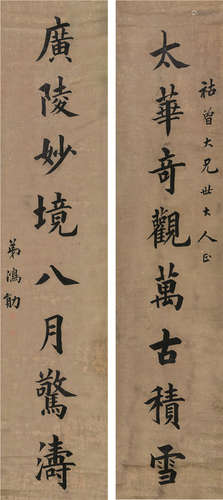 祜曾大兄世大人正
太華奇觀萬古積雪
廣陵妙境八月驚濤
弟鴻勛